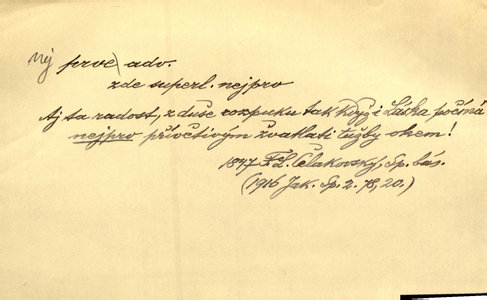 nej prvé) adv.
zde superl. nejpro
Aj ta radost, z duše rozpuku tak když i láska počíná
nejpro přívětivým žvatlati tužby okem!
1847 F.L. Čelakovský, Sp. bás.
(1916 Jak. Sp. 2. 78, 20.)